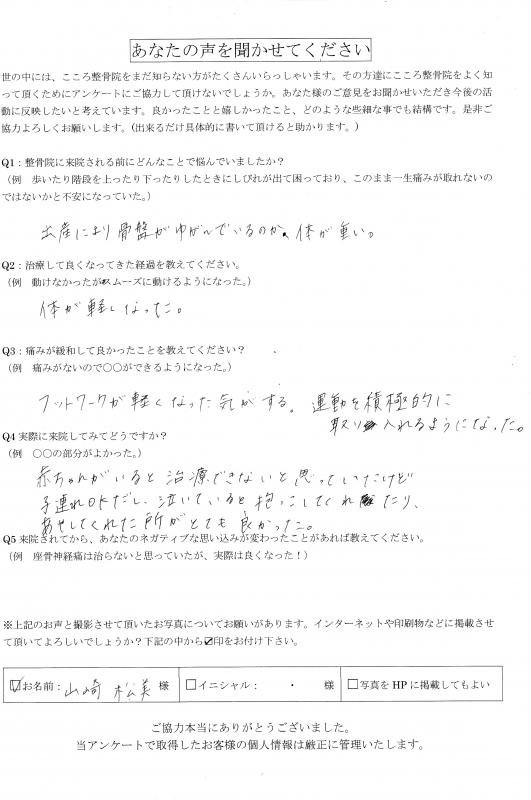 あなたの声を聞かせてください
世の中には、こころ整骨院をまだ知らない方がたくさんいらっしゃいます。その方達にこころ整骨院をよく知
って頂くためにアンケートにご協力して頂けないでしょうか。あなた様のご意見をお聞かせいただき今後の活
動に反映したいと考えています。良かったことと嬉しかったこと、どのような些細な事でも結構です。是非ご
協力よろしくお願いします。(出来るだけ具体的に書いて頂けると助かります。)
Q1：整骨院に来院される前にどんなことで悩んでいましたか？
（例　歩いたり階段を上ったり下ったりしたときにしびれが出て困っており、このまま一生痛みが取れないの
ではないかと不安になっていた。）
出産により骨盤がゆがんでいるのか、体が重い。
Q2：治療して良くなってきた経過を教えてください。
（例　動けなかったがスムーズに動けるようになった。）
体が軽くなった。
Q3：痛みが緩和して良かったことを教えてください？
（例　痛みがないので〇〇ができるようになった。）
フットワークが軽くなった気がする。運動を積極的に
取り入れるようになった。
Q4 実際に来院してみてどうですか？
（例　〇〇の部分がよかった。）
赤ちゃんがいると治療できないと思っていたけど
子連れOKだし、泣いていると抱っこしてくれたり、
あやしてくれた所がとても良かった。
Q5 来院されてから、あなたのネガティブな思い込みが変わったことがあれば教えてください。
（例　座骨神経痛は治らないと思っていたが、実際は良くなった！）
※上記のお声と撮影させて頂いたお写真についてお願いがあります。インターネットや印刷物などに掲載させ
て頂いてよろしいでしょうか？下記の中から☑印をお付け下さい。
☑お名前：山崎 松美 様　□イニシャル：　・　様　□写真を HP に掲載してもよい
ご協力本当にありがとうございました。
当アンケートで取得したお客様の個人情報は厳正に管理いたします。